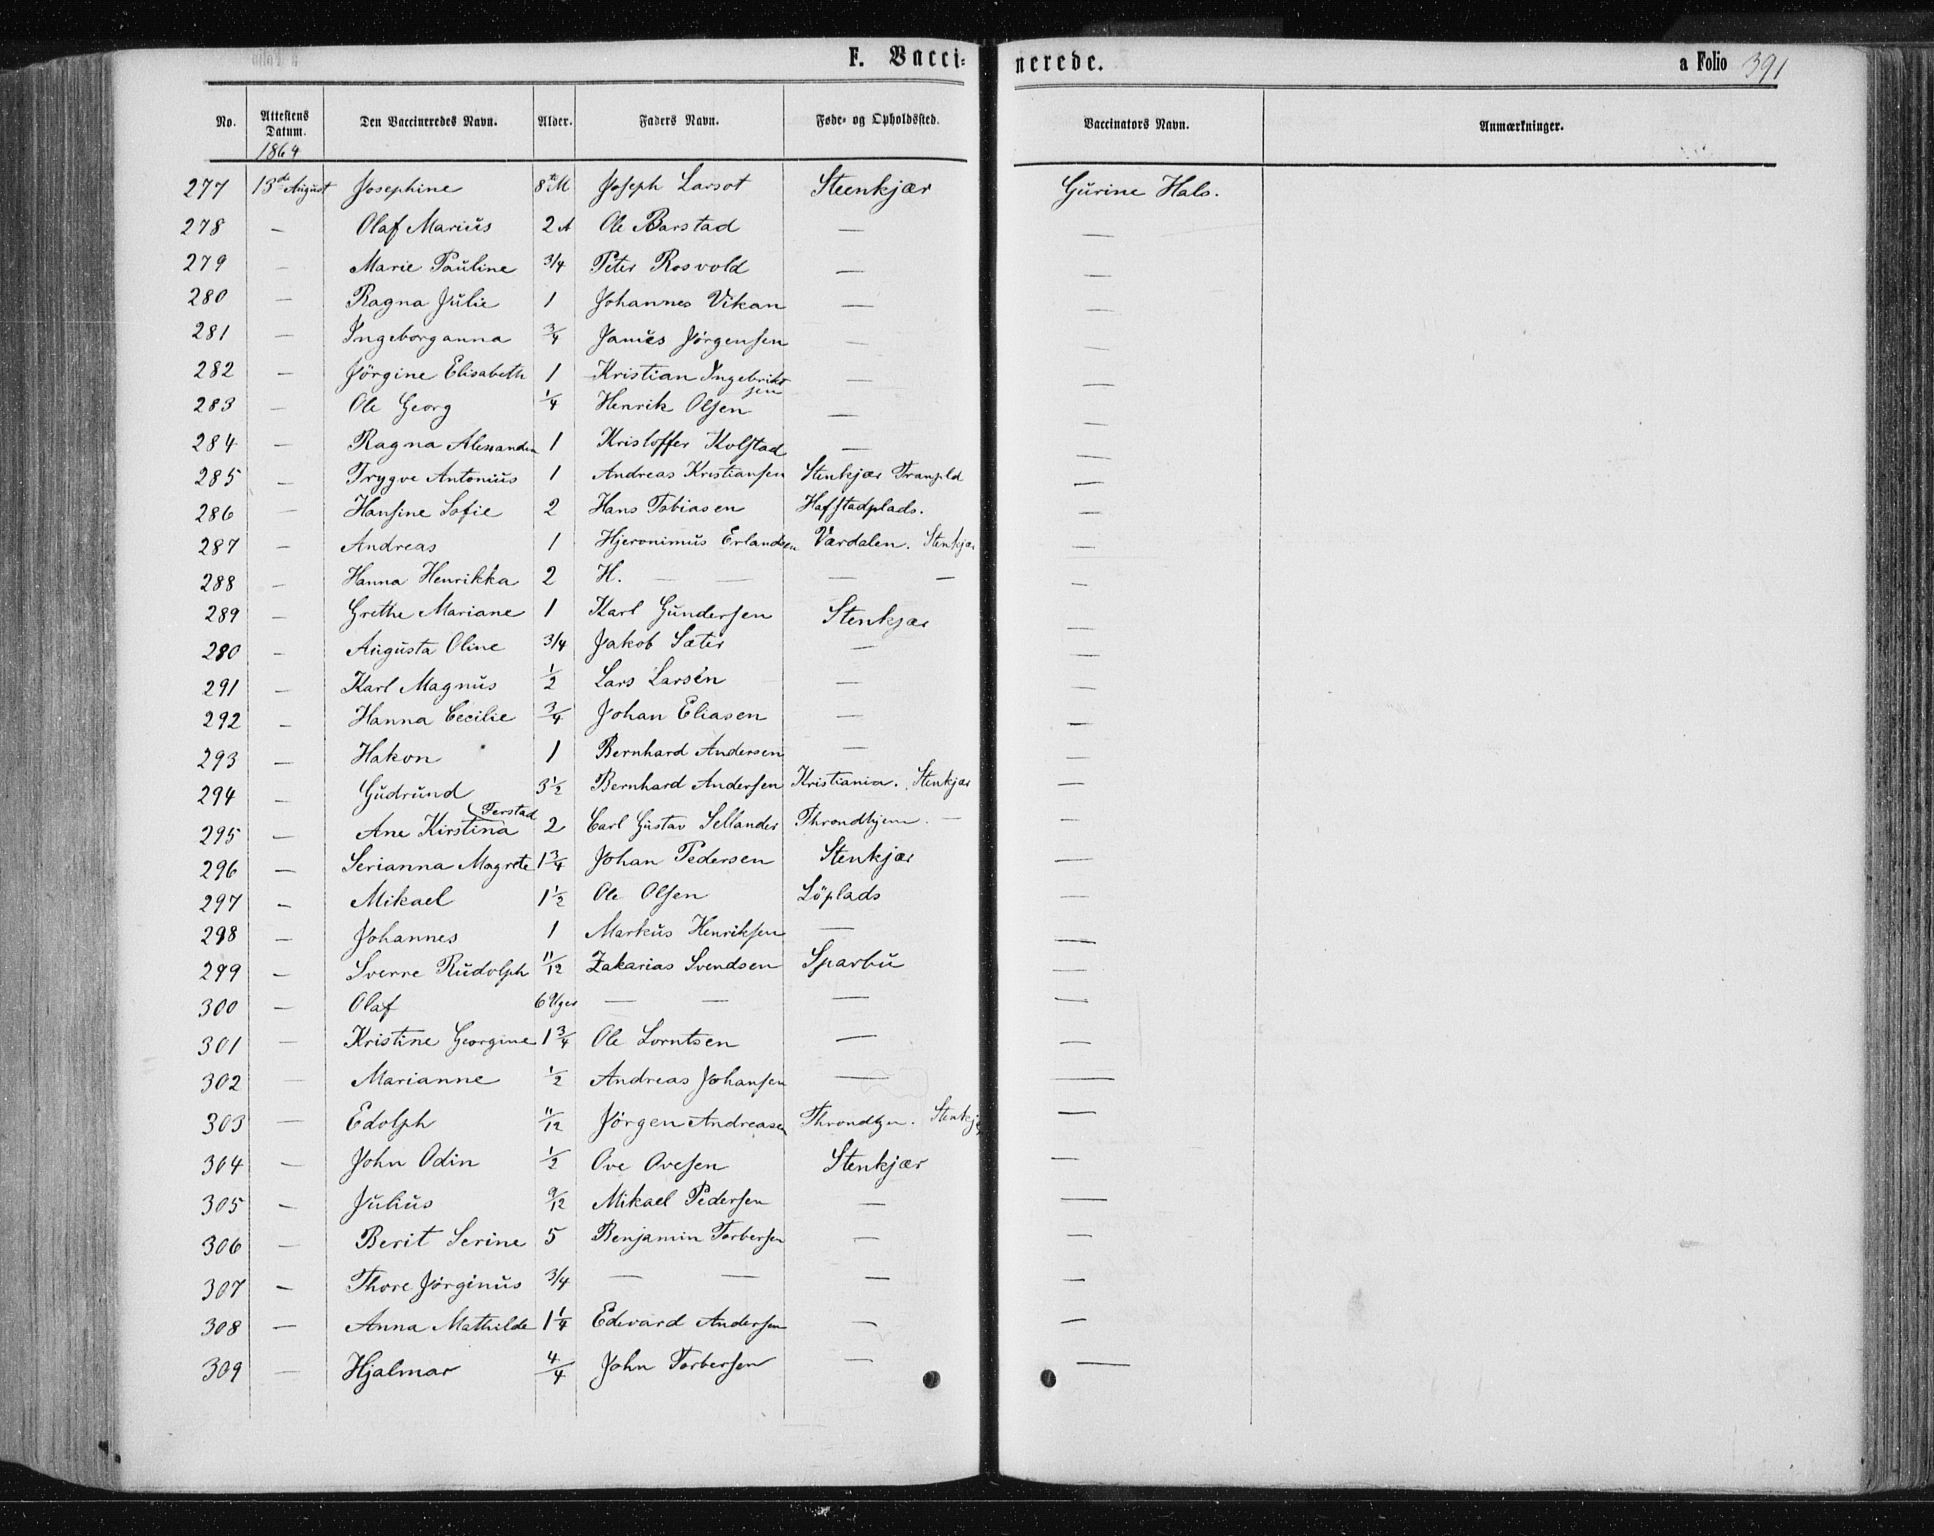 F. Vaccinerede. a Folio 391
No. Attestens Datum. Den Vaccineredes Navn. Alder. Faders Navn. Føde- og Opholdssted. Vaccinators Navn. Anmærkninger.
1864
277 13de August Josephine 8te M Joseph Larsot Steenkjær Gurine Hals.
278 — Olaf Marius 2 A Ole Barstad — —
279 — Marie Pauline 3/4 Peter Rosvold — —
280 — Ragna Julie 1 Johannes Vikan — —
281 — Ingeborganna 3/4 Janus Jørgensen — —
282 — Jörgine Elisabeth 1 Kristian Ingebriktsen — —
283 — Ole Georg 1/4 Henrik Olsen — —
284 — Ragna 1 Kristoffer Kolstad — —
285 — Trygve Antonius 1 Andreas Kristiansen Stenkjær —
286 — Hansine Sofie 2 Hans Tobiasen Hafstadplads. —
287 — Andreas 1 Hjeronimus Erlandsen Værdalen. Stenkjær —
288 — Hanna Henrikka 2 H. — — — — —
289 — Grethe Mariane 1 Karl Gundersen Stenkjær —
280 — Augusta Oline 3/4 Jakob Sæter — —
291 — Karl Magnus 1/2 Lars Larsen — —
292 — Hanna Cecilie 3/4 Johan Eliasen — —
293 — Hakon 1 Bernhard Andersen — —
294 — Gudrund 3 1/2 Bernhard Andersen Kristiania. Stenkjær —
Ferstad
295 — Ane Kirstina 2 Carl Gustav Sellander Throndhjem. — —
296 — Serianna Magrete 1 3/4 Johan Pedersen Stenkjær —
297 — Mikael 1 1/2 Ole Olsen Löplads —
298 — Johannes 1 Markus Henriksen — —
299 — Sverre Rudolph 11/12 Zakarias Svendsen Sparbu —
300 — Olaf 6 Uger — — — —
301 — Kristine Georgine 1 3/4 Ole Lorntsen — —
302 — Marianne 1/2 Andreas Johansen — —
303 — Edolph 11/12 Jörgen Andreasen Throndhjn. Stenkjær —
304 — John Odin 1/2 Ove Ovesen Stenkjær —
305 — Julius 9/12 Mikael Pedersen — —
306 — Berit Serine 5 Benjamin Torbersen — —
307 — Thore Jørginus 3/4 — — — —
308 — Anna Mathilde 1 1/4 Edevard Andersen — —
309 — Hjalmar 4/4 John Torbersen — —